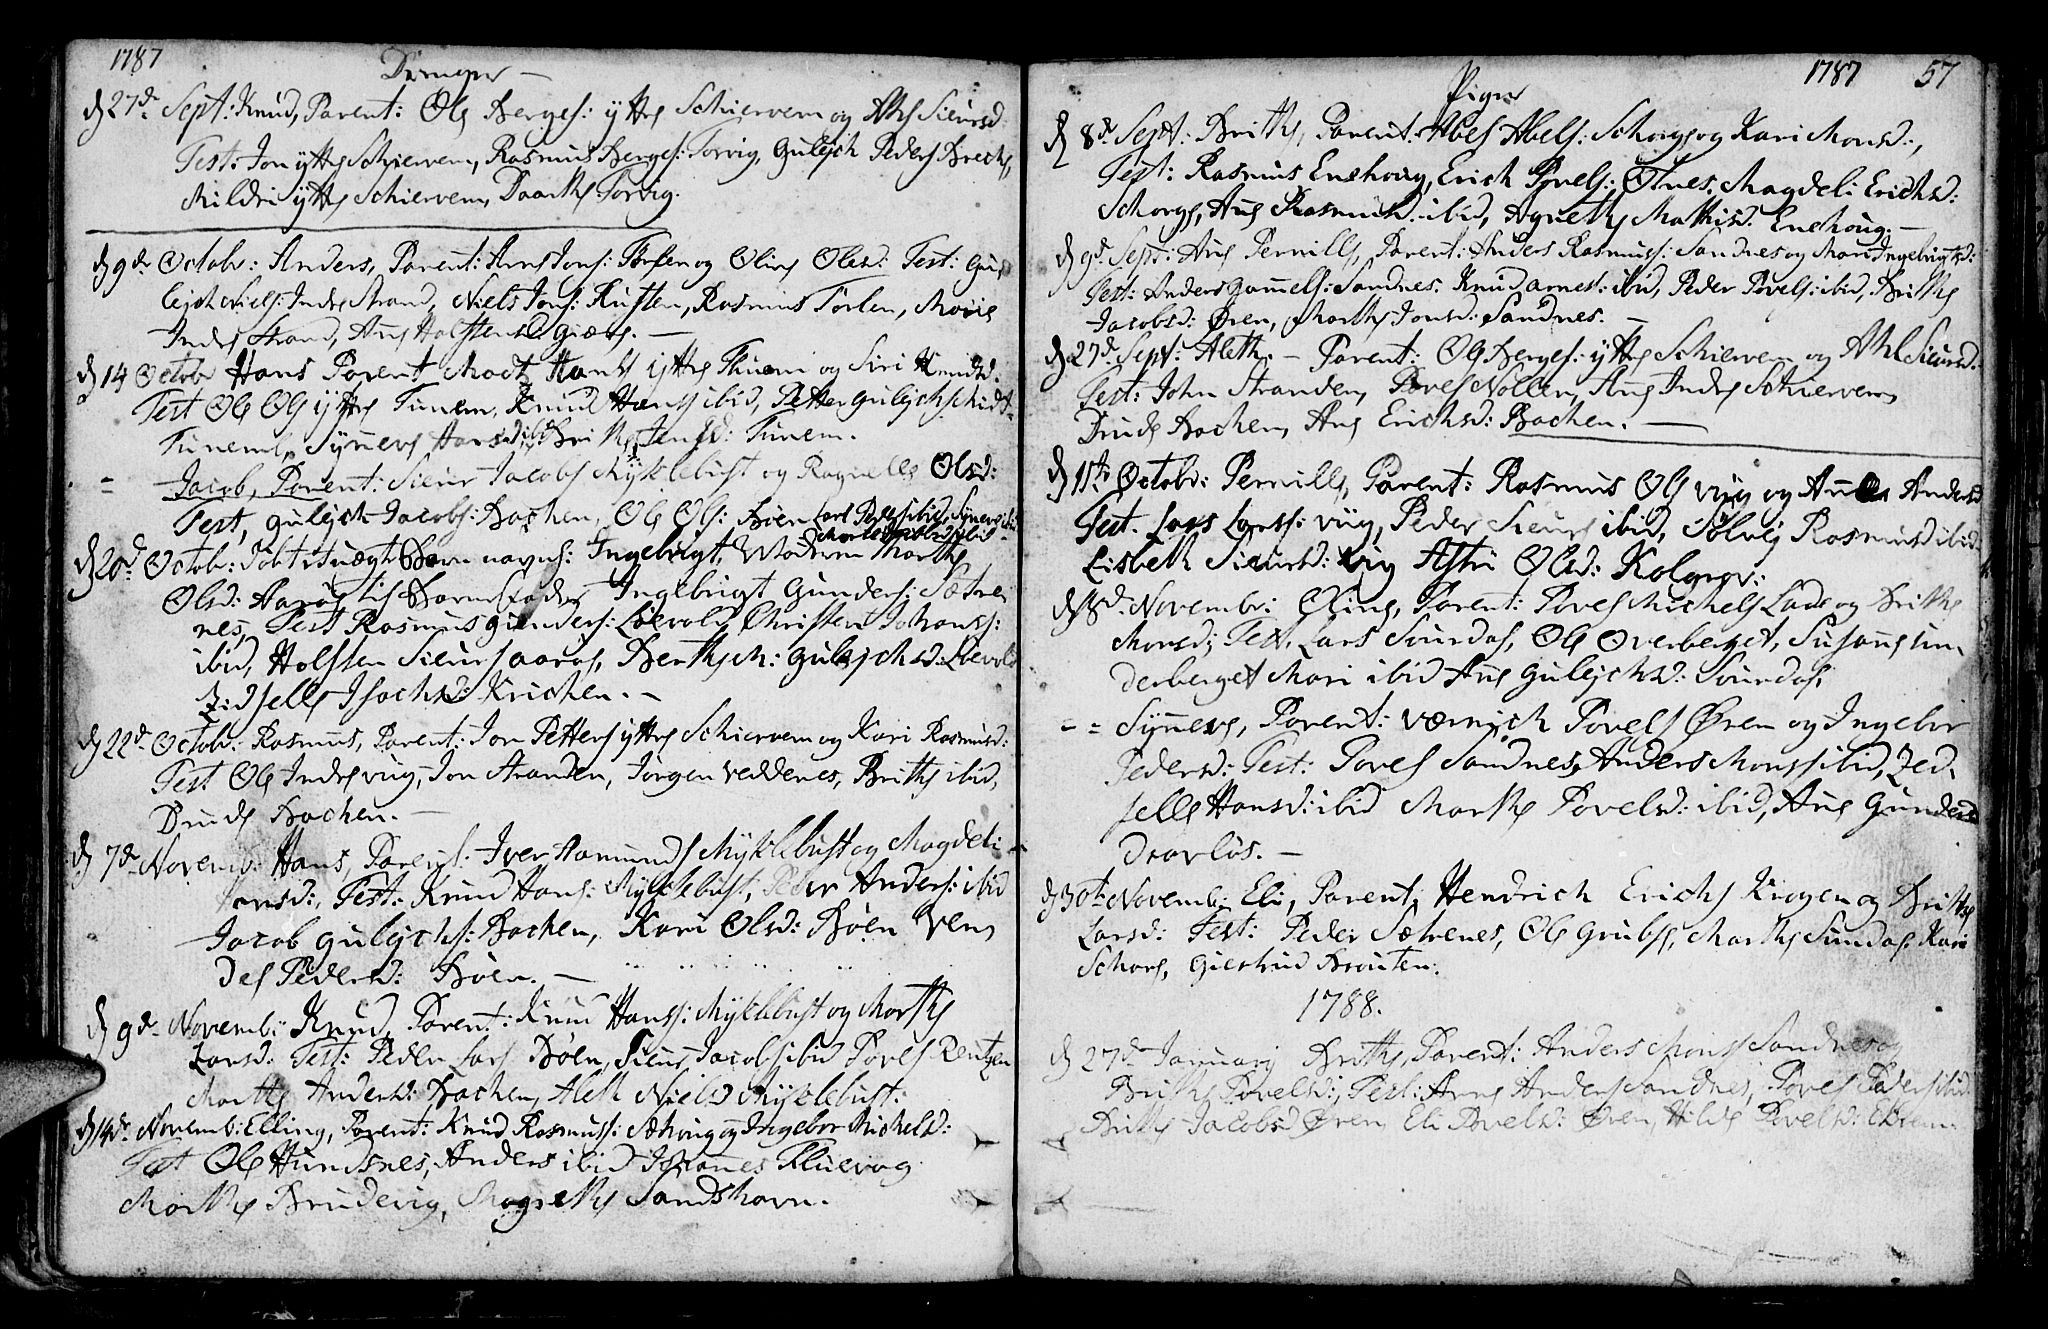 1787
Drenger —
d 27de Sept: Knud, Parent: Ole Berges: ytte Schiervem og Ahle Siursd
Test: Jon ytte Schiervem, Rasmus Berges: Torvig, Gulejch Peders Breche,
Mildri ytte Schiervem, Daarthe Torvig.
d 9de Octobr: Anders, Parent: Arne Jons: Tørlen og Oline Olsd: Test: Gu
lejch Niels: Indre Strand, Niels Jons: Rusten, Rasmus Tørlen, Marie
Indre Strand, Ane Holstensd Giære. —
d 14 Octob Hans Parent Mads Hans ytte Tunem og Siri Knudsd.
Test Ole Ols ytte Tunem, Knud Hanss ibid, Petter Gulejchs
Tunem, Synneve Hansd ibid Brithe Jensd: Tunem.
- = Jacob, Parent: Siur Jacobs Myklebust og Ragnelle Olsd:
Test, Gulejch Jacobs: Bachen, Ole Ols: Bøen Lars Peders ibid, Synneve ibid
Marte Jacobsd ibid
d 20de Octob: døbt Uægte Barn navns: Ingebrigt, Modren Marthe
Olsd: Aarøe Barnefader Ingebrigt Gunders: Sætre
nes, Test Rasmus Gunders: Løevold, Christen Johans:
ibid, Holsten Siurs Aarøe, Berthe Gulejchsd: Løevold
Zidselle Isachsd: Kirchen. —
d 22de Octob: Rasmus, Parent: Jon Petters ytte Schiervem og Kari Rasmusd:
Test Ole Indre Viig, Jon Stranden, Jørgen Veddenes, Brithe ibid,
Drude Bachen. —
d 7de Novemb: Hans, Parent: Iver Aamunds Myklebust og Magdeli
Hansd: Test: Knud Hans: Myklebust, Peder Anders: ibid
Jacob Gulejchs: Bachen, Kari Olsd: Bøen Ven,
del Pedersd: Bøen. —
d 9de Novemb: Knud, Parent: Knud Hanss: Myklebust og Marthe
Larsd: Test: Peder Lars Bøen, Siur Jacobs ibid Povel Rentzen
Marthe Andersd: Bachen, Aleth Nielsd Myklebust:
d 14de Novemb: Elling, Parent: Knud Rasmuss: Sæhoug og Ingebor Michelsd:
Test Ole Hundsnes, Anders ibid Johannes Fluevog
Marthe Brudevig, Magrethe Sandshavn.
1787 57
Piger
d 8de Sept: Brithe, Parent: Abel Abels: Schorge og Kari Monsd:,
Test: Rasmus Enehoug, Erich Povels: Otnes, Magdeli Erichsd:
Schorge, Ane Rasmusd: ibid, Agnethe Mathisd. Enehoug. —
d 9de Sept: Ane Pernille, Parent: Anders Rasmuss: Sandnes og Mari Ingebrigtsd:
Test: Anders Gammels: Sandnes. Knud Arnes: ibid, Peder Povels: ibid, Brithe
Jacobsd: Øren, Marthe Jonsd: Sandnes. —
d 27de Sept: Aleth, — Parent: Ole Berges: ytte Schiervem og Ahle Siursd.
Test: John Stranden, Povel Nollen, Ane Indre Schiervem
Drude Bachen, Ane Erichsd: Bachen. —
d 11te Octobr: Pernille, Parent: Rasmus Ole Viig og Anne Andersd
Test. Lars Larss: Viig, Peder Siurs ibid, Solvej Rasmusd ibid
Lisbeth Siursd: Viig Astri Olsd: Kolgrov:
d 8de Novembr: Oline, Parent: Povel Michels Lade og Brithe
Monsd; Test, Lars Suurdal, Ole Overberget, Susanne Un,
derberget Mari ibid Ane Gulejchsd: Suurdal,
- = Synneve, Parent: Værnich Povels Øren og Ingebor
Pedersd: Test: Povel Sandnes, Anders Monss ibid, Zed,
selle Hansd: ibid Marthe Povelsd: ibid, Ane Gundersd
Dravløs. —
d 30te Novemb: Eli, Parent, Hendrich Erichs Krogen og Brithe
Larsd: Test: Peder Sætrenes, Ole Grubse, Marthe Sundal Kari
Schare, Giertrud Brouten.
1788.
d 27de Januarij Brithe, Parent: Anders Monss Sandnes og
Brithe Povelsd:, Test: Arne Anders Sandnes, Povel Peders ibid
Brithe Jacobsd Øren, Eli Povelsd: Øren, Hilde Povelsd: Ekrem